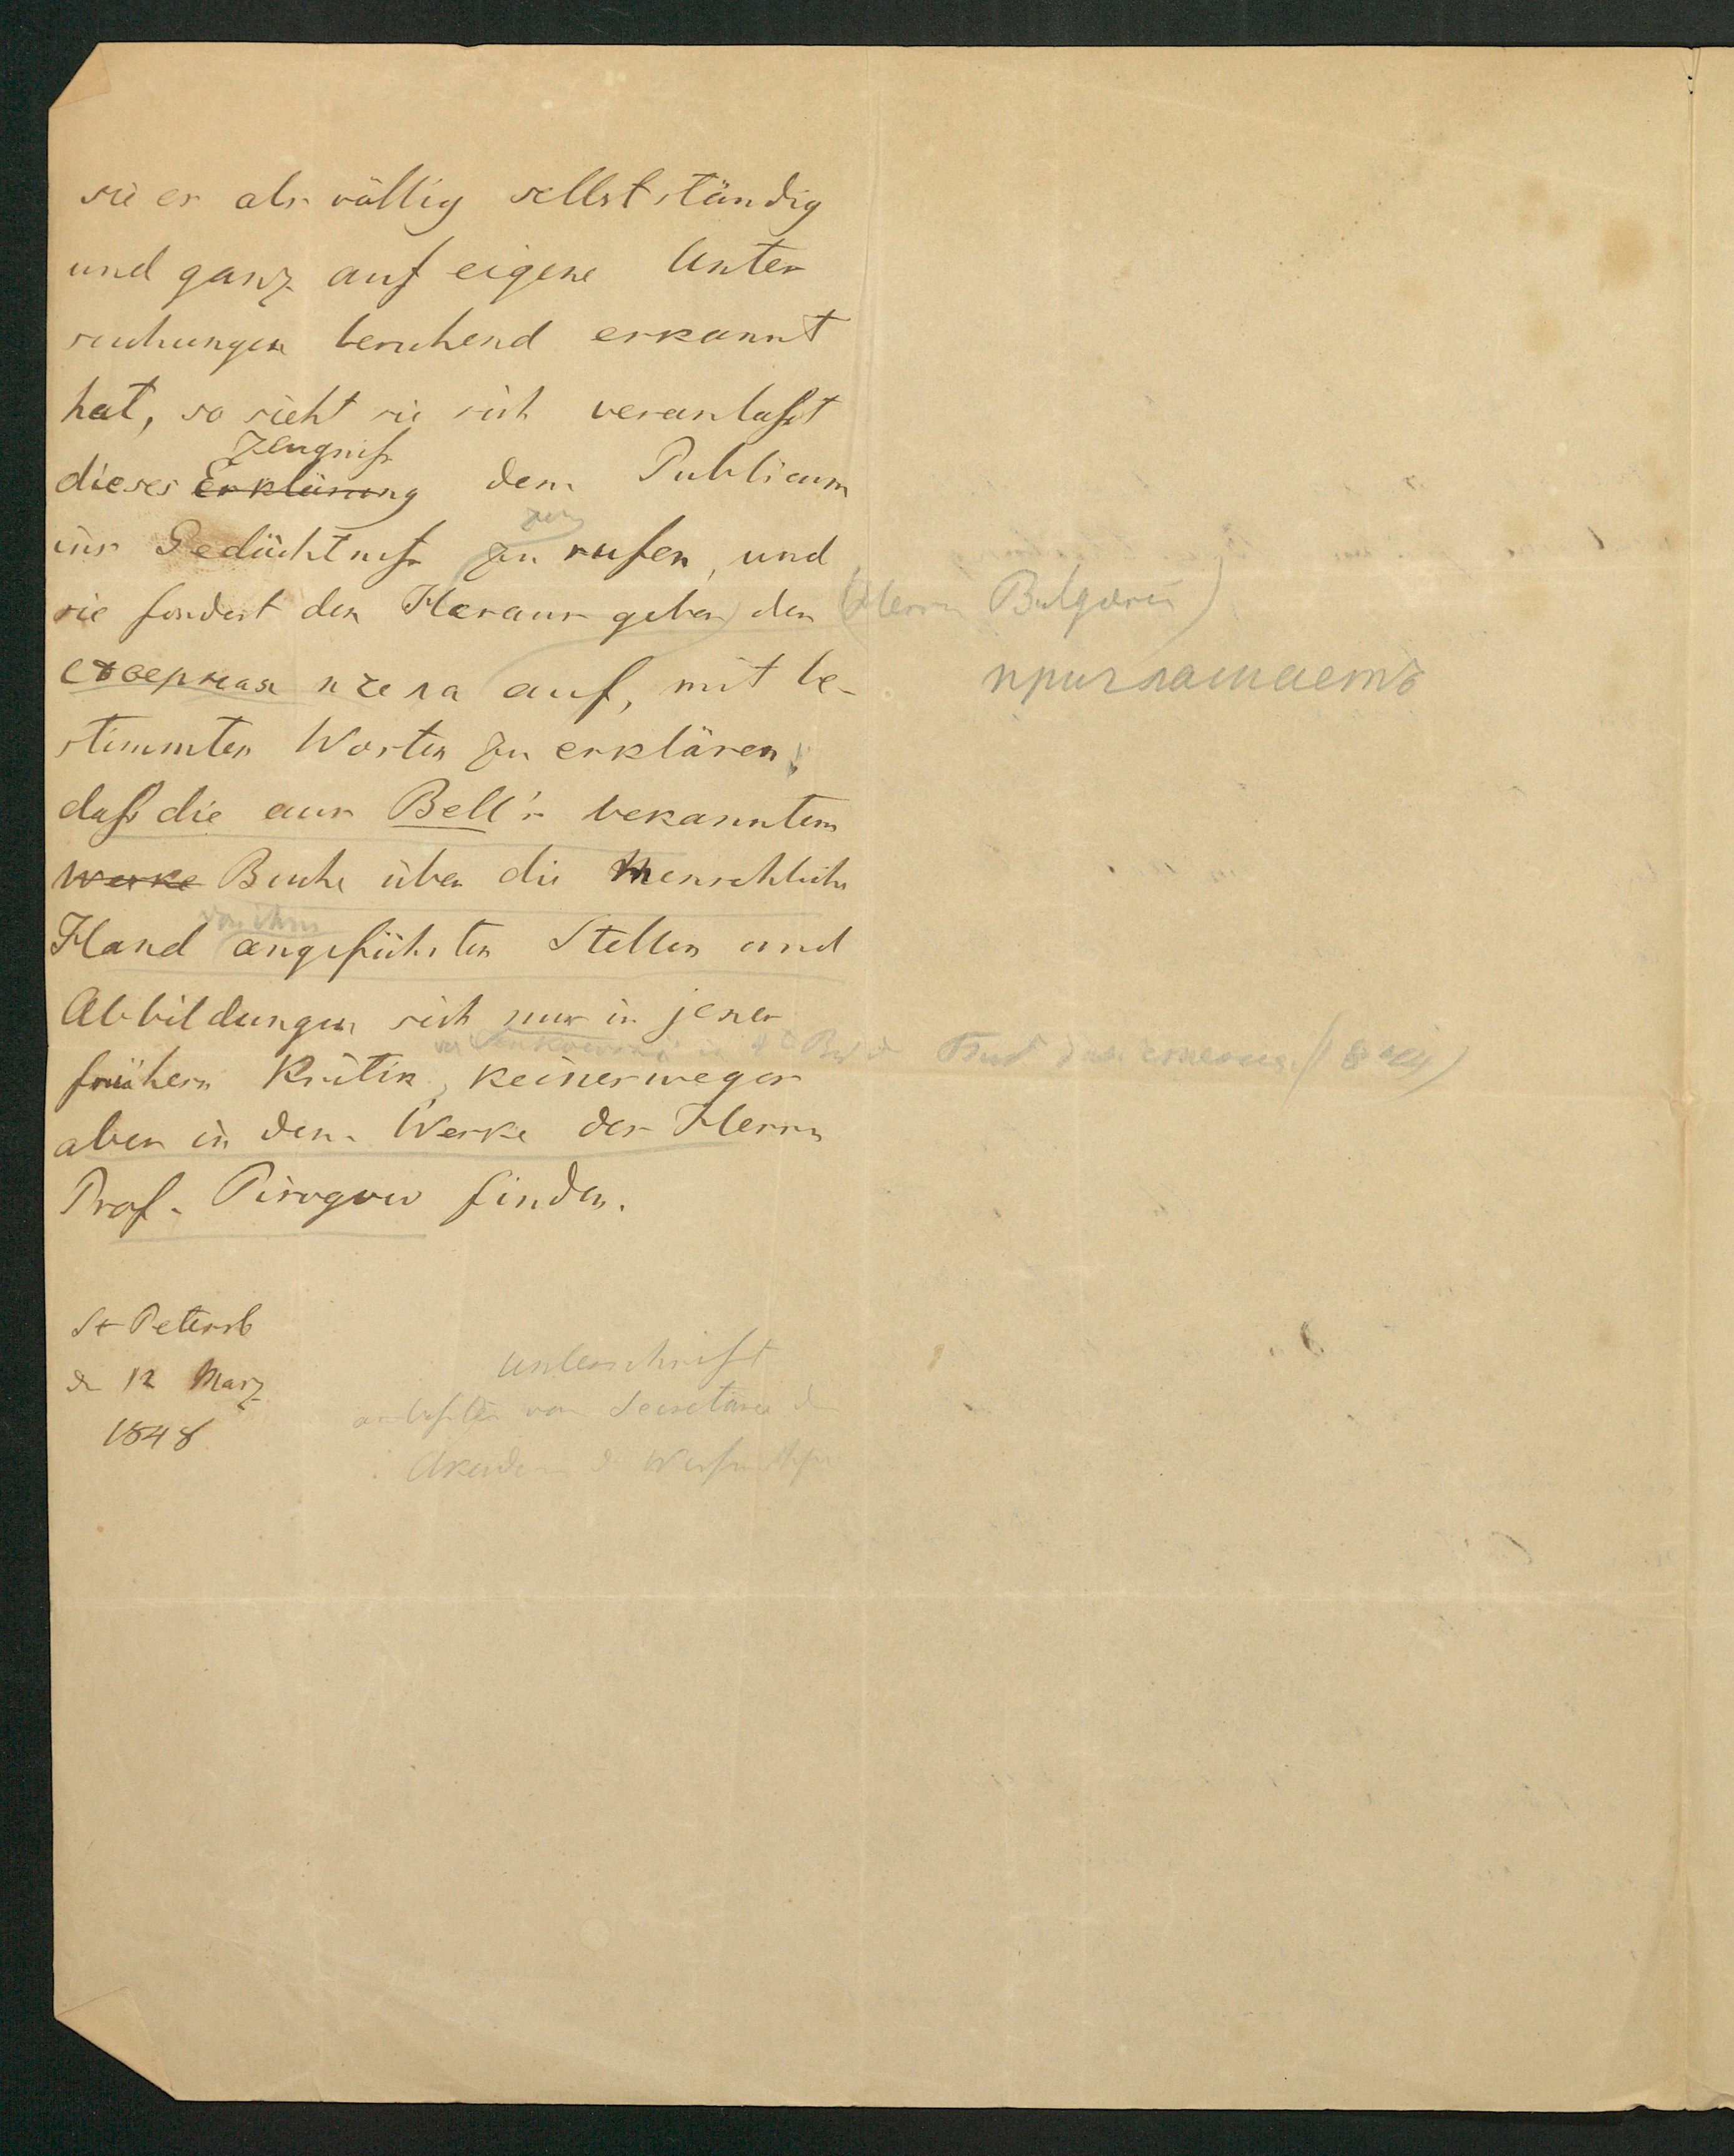 sie es als völlig selbstständig
und ganz auf eigene Unter
suchungen beruhend erkannt
hat, so sieht sie sich veranlaßt
Zeugniß
dieses Erklärung dem Publicum
ins Gedächtniß zu rufen, und
sie fordert den Herausgeber der (Herrn Bulgarin)
северная пчела auf, mit be-
приглашаетъ
stimmten Worten zu erklären,
daß die aus Bell's bekanntem
Werke Buche über die Menschliche
von ihm
Hand angeführten Stellen und
Abbildungen sich nur in jener
frühern Kritik, keinesweges
aber in dem Werke des Herrn
Prof. Pirogow finden.
St Petersb
d 12 März
1848
Unterschrift
vom Secretär d
Akadem d Wissensch